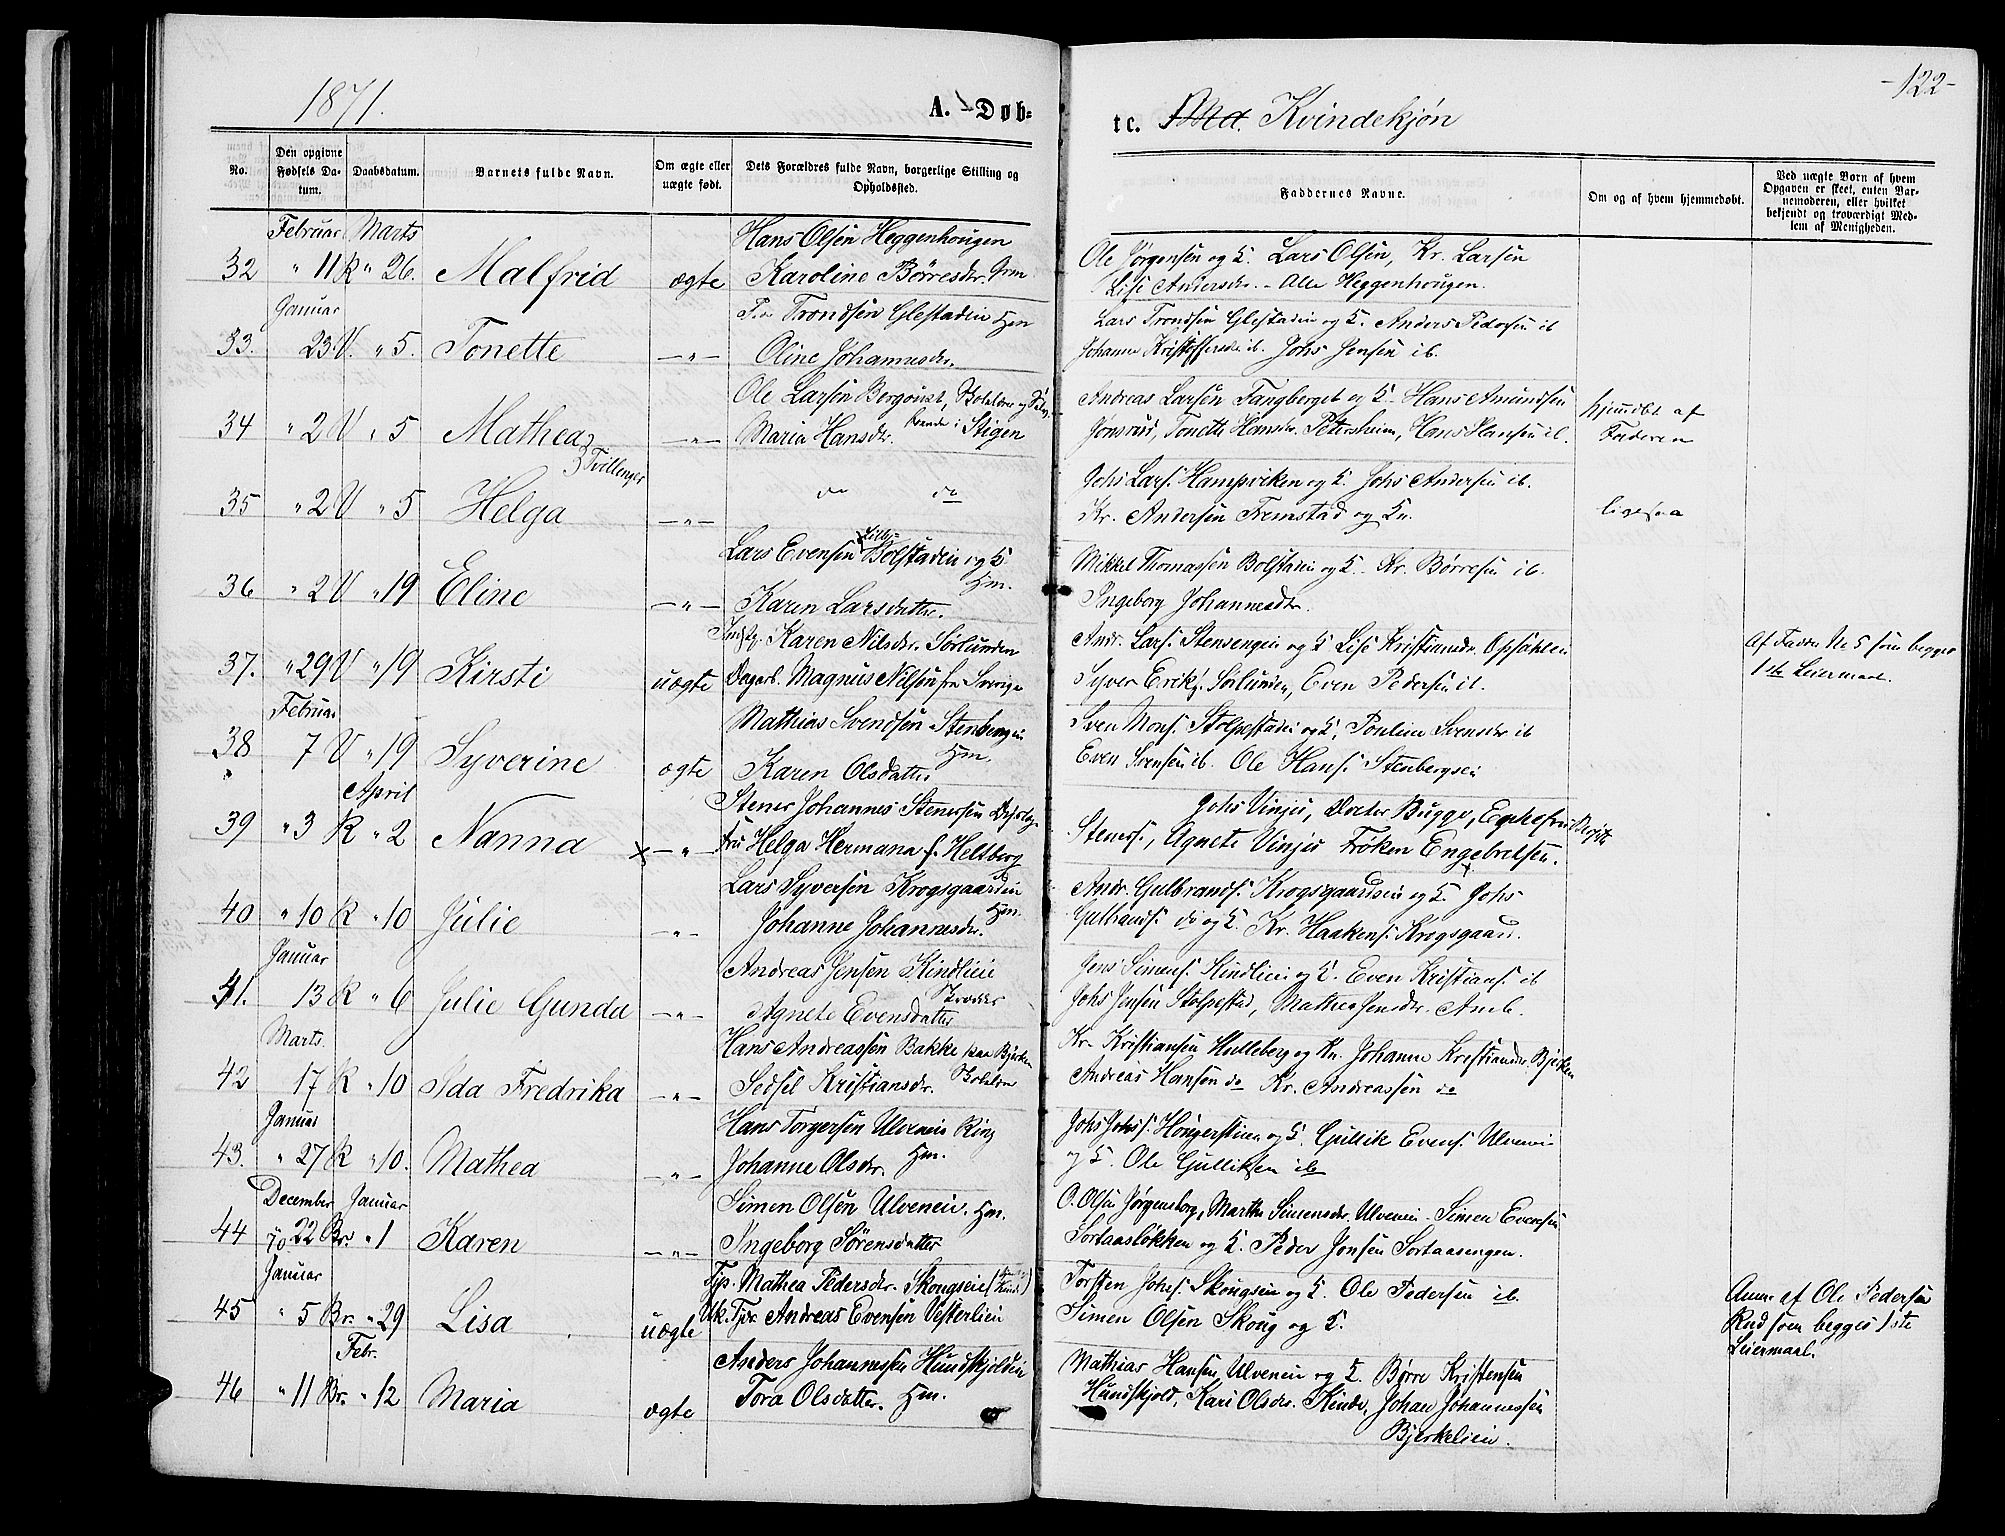 1871.
A. Døb=
No.
Den opgivne Fødsels Datum.
Daabsdatum.
Barnets fulde Navn.
Om ægte eller uægte født.
Dets Forældres fulde Navn, borgerlige Stilling og Opholdssted.
Februar Marts Hans Olsen Heggenhougen
32 " 11 R " 26. Malfrid ægte Karoline Børresdr. Grm
Januar Trondsen Glestadeie Hm
33. 23. V. " 5. Tonette — " — Oline Johannesdr.
Ole Larsen Bergqust,
34 " 2 V " 5 Mathea — " — Maria Hansdr. Stigen
Tvillinger
35 " 2 V " 5 Helga — " — do do
Lars Evensen Bolstadeie og K.
Lille
Hm.
36 " 2 V " 19 Eline — " — Karen Larsdatter.
Karen Nilsdr. Sørlunden
37. " 29 V " 19 Kirsti uægte Dagarb. Magnus Nilsen fra Sverige
Februar Mathias Svendsen Stenbergeie
38 7 V " 19 Syverine ægte Karen Olsdatter Hm.
April Stener Johannes Stenersen
39 " 3 R " 2 Nanna x — " — Fru Helga Hermana f. Heltberg
Lars Syversen Krogsgaardeie
40 " 10 R " 10 Julie — " — Johanne Johannesdr. Hm.
Januar Andreas Jensen Kindlieie
41. 13 R " 6 Julie Gunda — " — Agnete Evensdatter
Marts. Hans Andreassen Bakke paa Bjerke
42 17 R " 10 Ida Fredrika — " — Sedsel Kristiansdr.
Januar Hans Torgersen Ulveneie Ring
43. " 27 R " 10. Mathea — " — Johanne Olsdr. Hm.
December Januar Simen Olsen Ulveneie. Hm.
44 70 22 Br. " 1 Karen — " — Ingeborg Sørensdatter
Januar Tjp. Mathea Pedersdr. Skougseie
45 " 5 Br. " 29 Lisa uægte Uk. Tjdr. Andreas Evensen Vesterlien
Febr. Anders Johannessen Hundskjoldeie
46 " 11 Br. " 12 Maria ægte Tora Olsdatter. Hm.
-122-
te. Kvindekjøn
Faddernes Navne.
Om og af hvem hjemmedøbt.
Ved uægte Børn af hvem
Opgaven er skeet, enten Bar-
nemoderen, eller hvilket
bekjendt og troværdigt Med-
lem af Menigheden.
Ole Jørgensen og K. Lars Olsen, Kr. Larsen
Lise Andersdr. – Alle Heggenhougen.
Lars Trondsen Glestadeie og K. Anders Pedersen ib
Johanne Kristoffersdr ib. Johs Jensen ib.
Andreas Larsen Fangberget og K. Hans Amundsen hjemdbt af
Jønsrud, Tonette Hansdr. Petersheim, Hans Hansen ib. Faderen
Johs Lars. Hampviken og K. Johs Andersen ib.
Kr. Andersen Fremstad og Kn. ligesaa
Mikkel Thomassen Bolstadeie og K. Kr. Børresen ib.
Ingeborg Johannesdr.
Andr. Lars. Stensengeie og K Lise Kristiansdr. Opsahleie Af Fadder No 5 som begges
Syver Erik. Sørlunden, Even Pedersen ib. 1ste Leiermaal.
Sven Mons. Stolpestadeie og K, Pauline Svensdr ib
Even Svensen ib. Ole Hans. Stenbergseie
Johs Vinje, Doctor Bugge,
Steners., Agnete Vinje Frøken Engebretsen.
Andr. Gulbrands. Krogsgaardseie og K. Johs
Gulbrands. do og K. Kr. Haakens. Krogsgaard.
Jens Simens. Kindlieie og K. Even Kristians. ib
Johs Jensen Stolpestad, Mathea Jensdr. Aneb.
Kr. Kristiansen Hulleberg og Kn. Johanne Kristiansdr. Bjerken
Andreas Hansen do Kr. Andreassen do
Johs Johs. Hougerstuen og K. Gullik Evens. Ulveneie
og K. Ole Gulliksen ib
O. Olsen Jørgensborg, Marthe Simensdr. Ulveneie. Simen Evensen
Sortaasløkken og K. Peder Jonsen Sortaasengen.
Torsten Johs. Skougseie og K. Ole Pedersen ib. Anm. af Ole Pedersen
Simen Olsen Skoug og K. Rud som begges 1ste
Leiermaal.
Mathias Hansen, Ulveneie og K. Børre Kristensen
Hundskjold, Kari Olsdr. Kinde, Johan Johannessen
Bjerkelieie.